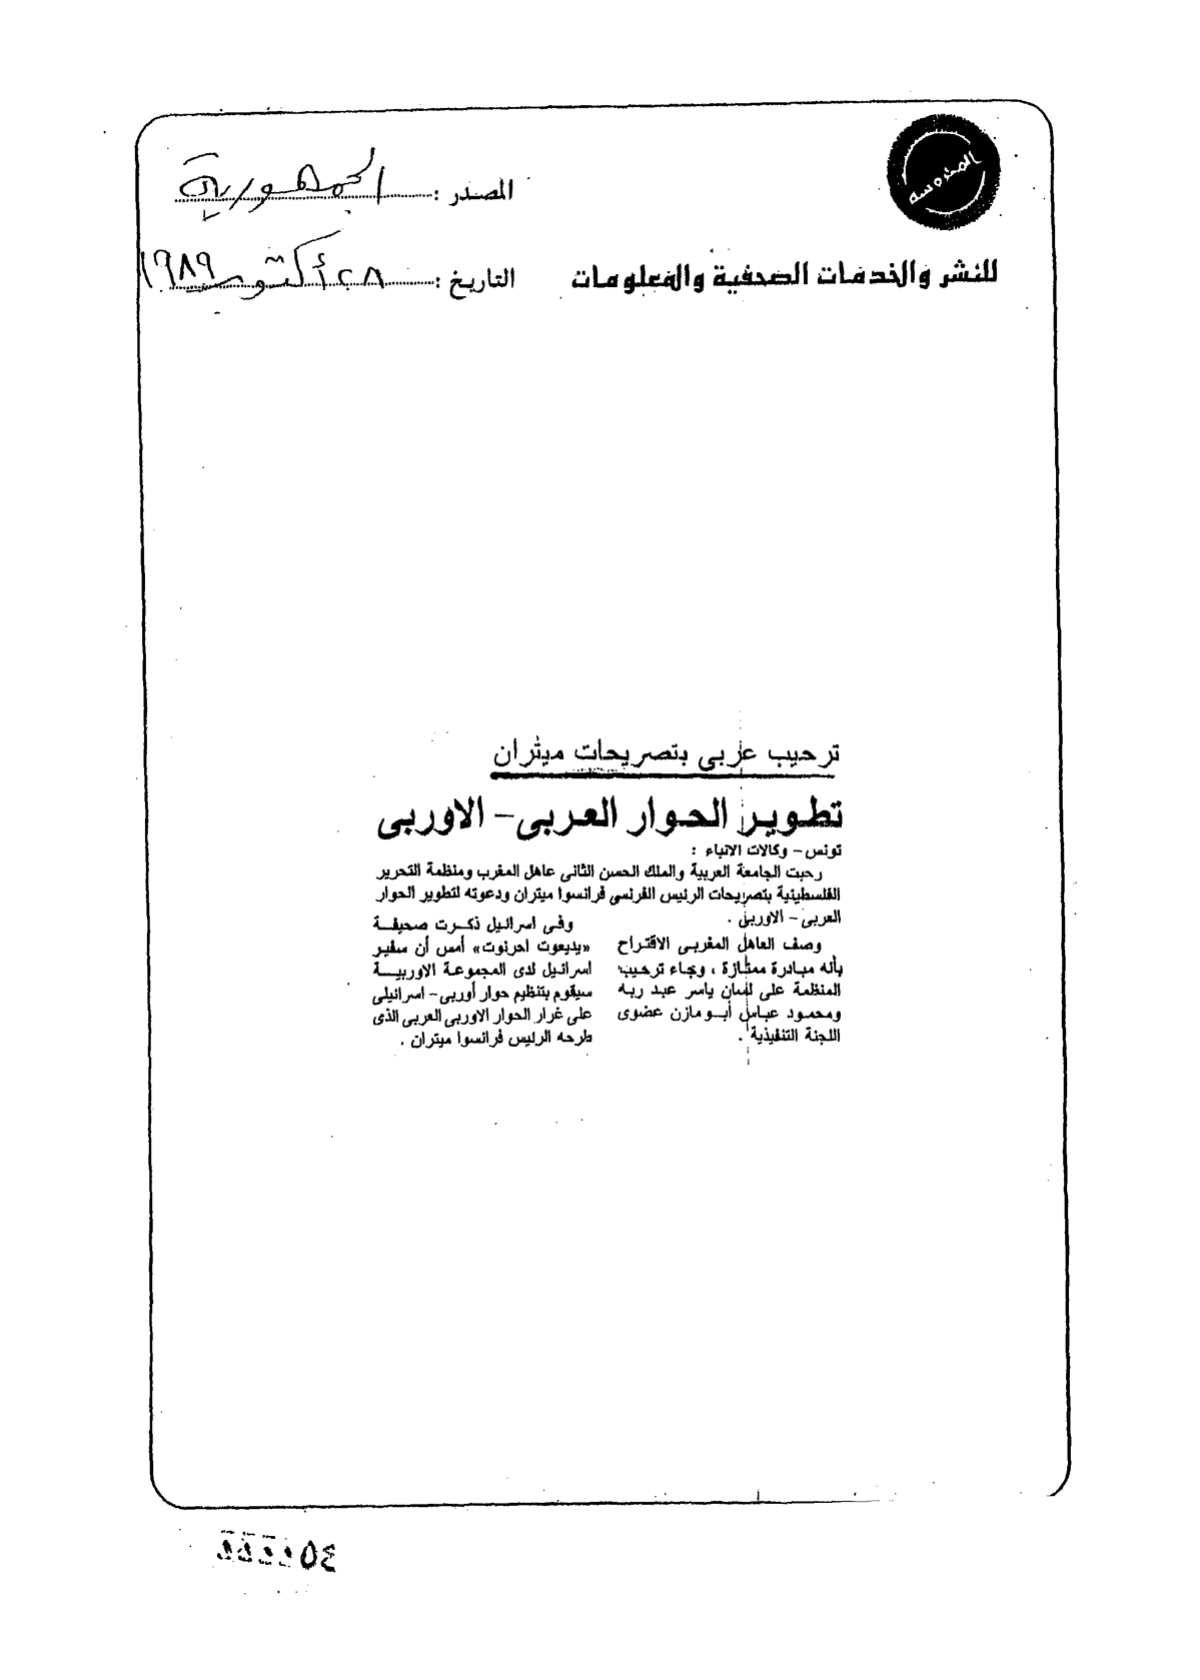 المحروسة
المصدر : الجمهورية
للنشر والخدمات الصحفية والمعلومات
التاريخ : ٢٨ أكتوبر ١٩٨٩
ترحيب عربى بتصريحات ميتران
تطوير الحوار العربى - الاوربى
تونس - وكالات الانباء :
رحبت الجامعة العربية والملك الحسن الثانى عاهل المغرب ومنظمة التحرير
الفلسطينية بتصريحات الرئيس الفرنسى فرانسوا ميتران ودعوته لتطوير الحوار
العربى - الاوربى .
وصف العاهل المغربى الاقتراح
بأنه مبادرة ممتازة ، وجاء ترحيب
المنظمة على لسان ياسر عبد ربه
ومحمود عباس أبو مازن عضوى
اللجنة التنفيذية .
وفى اسرائيل ذكرت صحيفة
«يديعوت احرنوت» أمس أن سفير
اسرائيل لدى المجموعة الاوربية
سيقوم بتنظيم حوار أوربى - اسرائيلى
على غرار الحوار الاوربى العربى الذى
طرحه الرئيس فرانسوا ميتران .